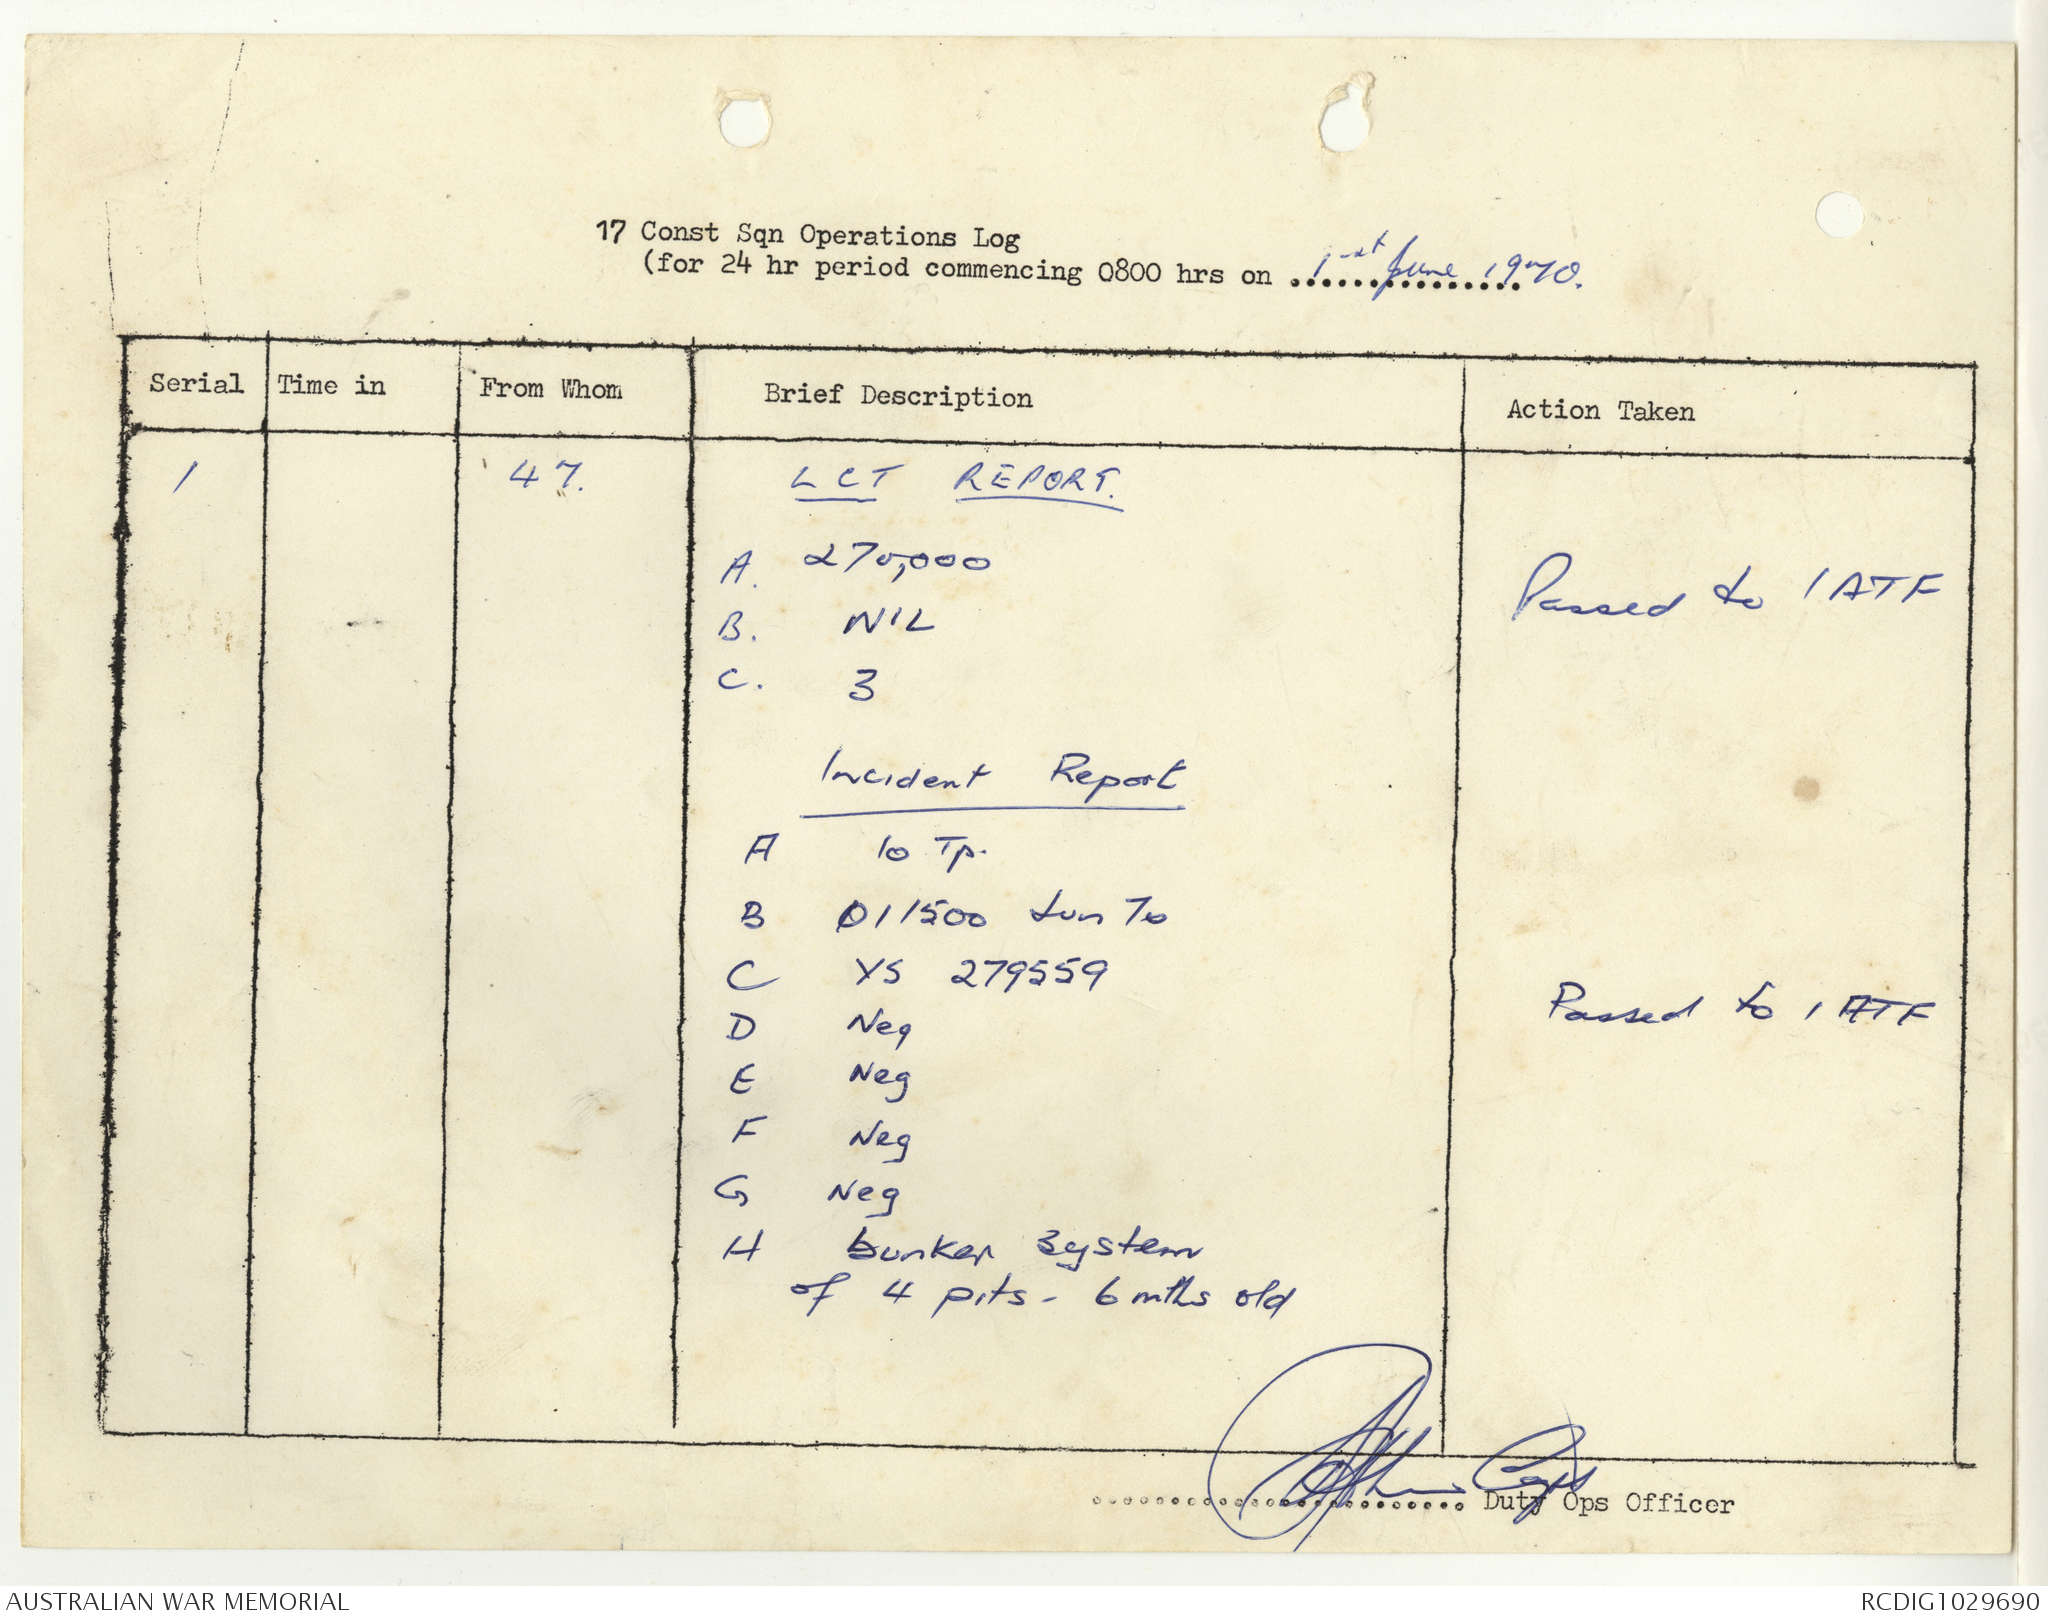 17 Const Sqn Operations Log
(for 24 hr period commencing 0800 hrs on 1st June 1970.
Serial Time in From Whom Brief Description Action Taken
1 47. LCT REPORT.
A. 270,000
Passed to 1 ATF
B. NIL
C. 3
Incident Report
A 10 Tp.
B 011500 Jun 70
C YS 279559
Passed to 1 ATF
D Neg
E Neg
F Neg
G Neg
H bunker system
of 4 pits - 6 mths old
Duty Ops Officer
AUSTRALIAN WAR MEMORIAL
RCDIG1029690